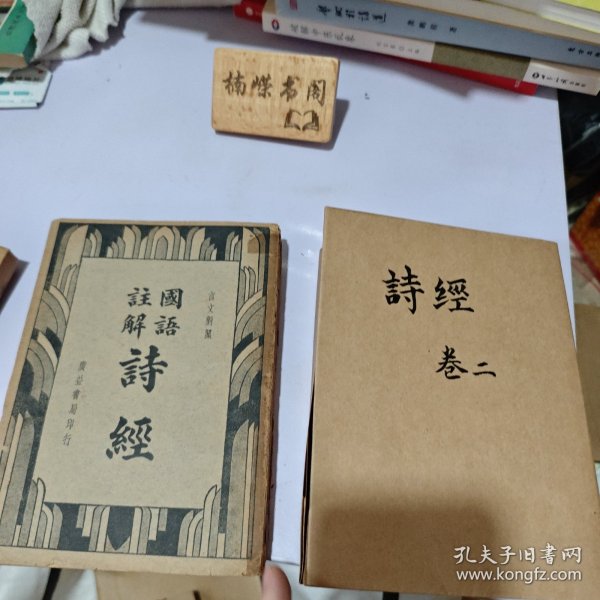 楠蝶书阁
言文對照
國語
註解
詩經
廣益書局印行
詩經
卷二
孔夫子旧书网
www.kongfz.com